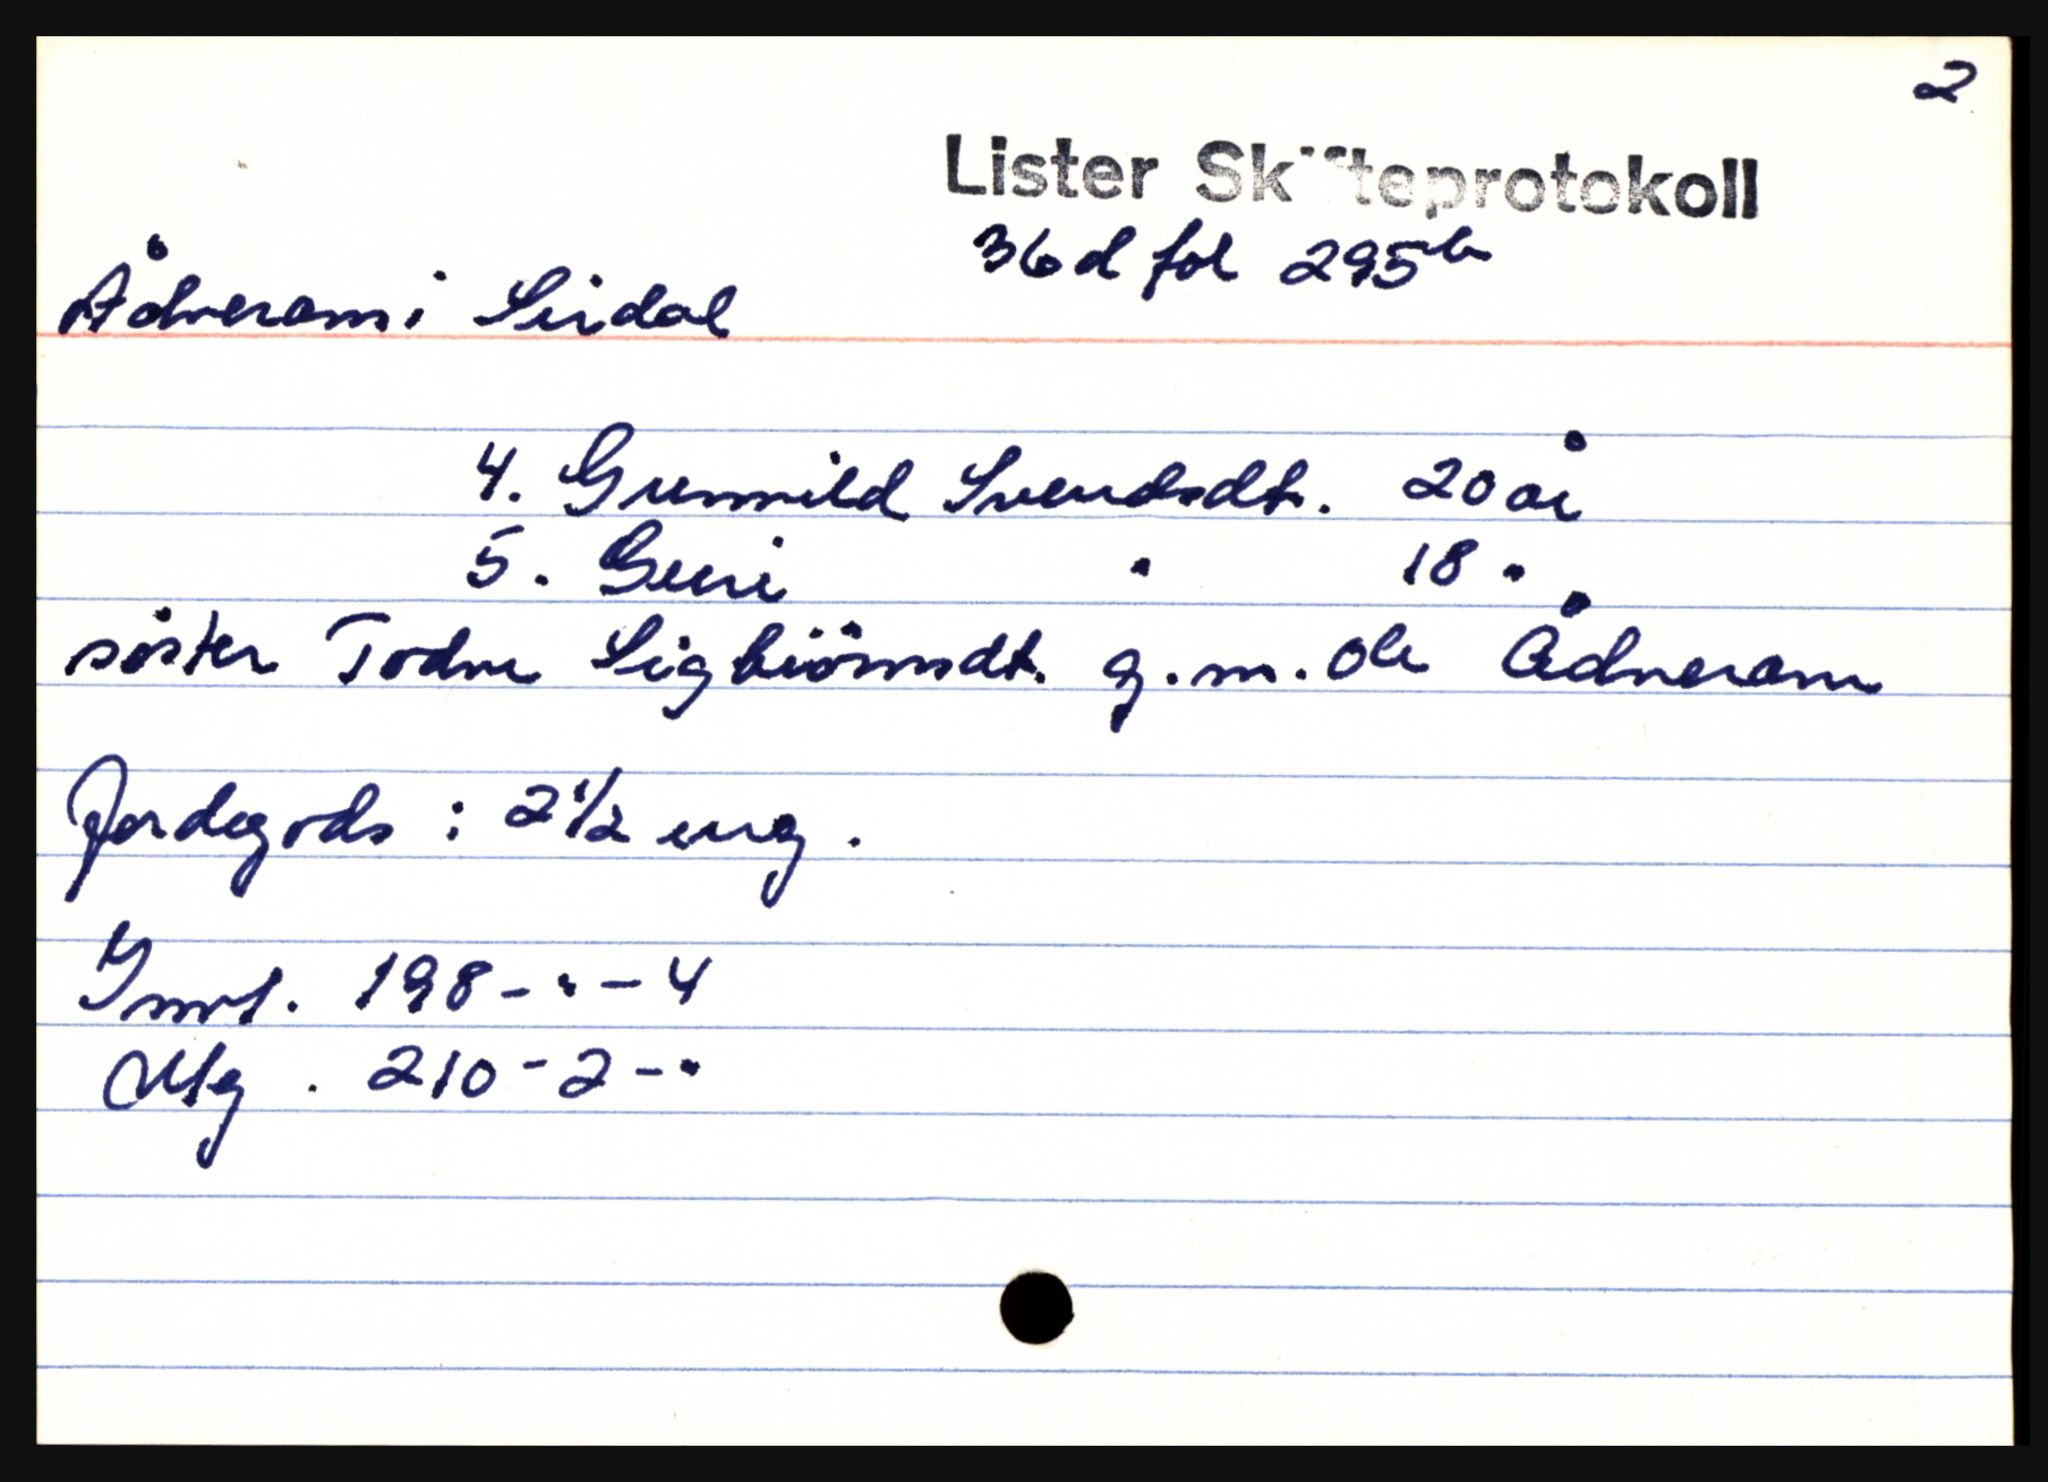 2
Lister Skifteprotokoll
36d fol 295b
Ådneram i Sirdal
4. Gunnild Svendsdt. 20 år
5. Guri " 18 "
søster Todne Sigbiörnsdt. g.m. Ole Ådneram
Jordegods : 2 1/2 eng.
Innt. 198 - " - 4
Utg. 210 - 2 - "